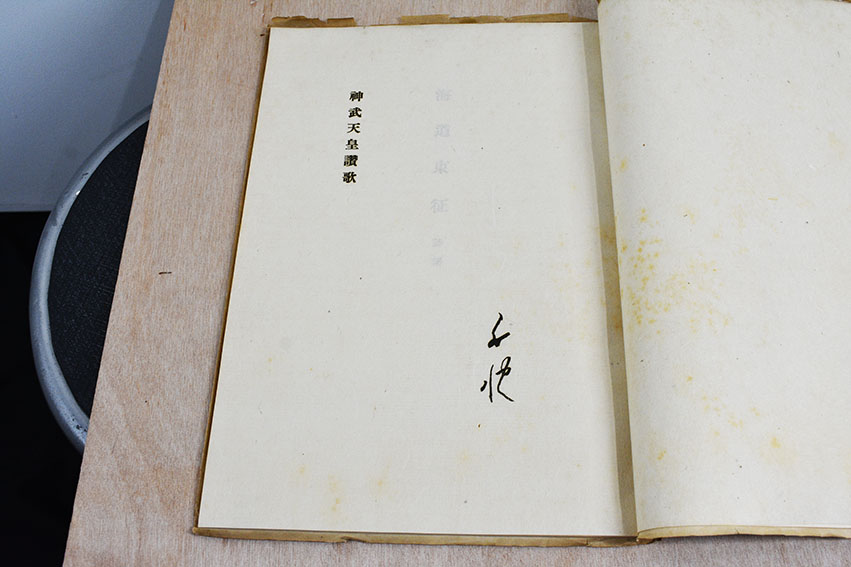 海道東征
神武天皇讚歌